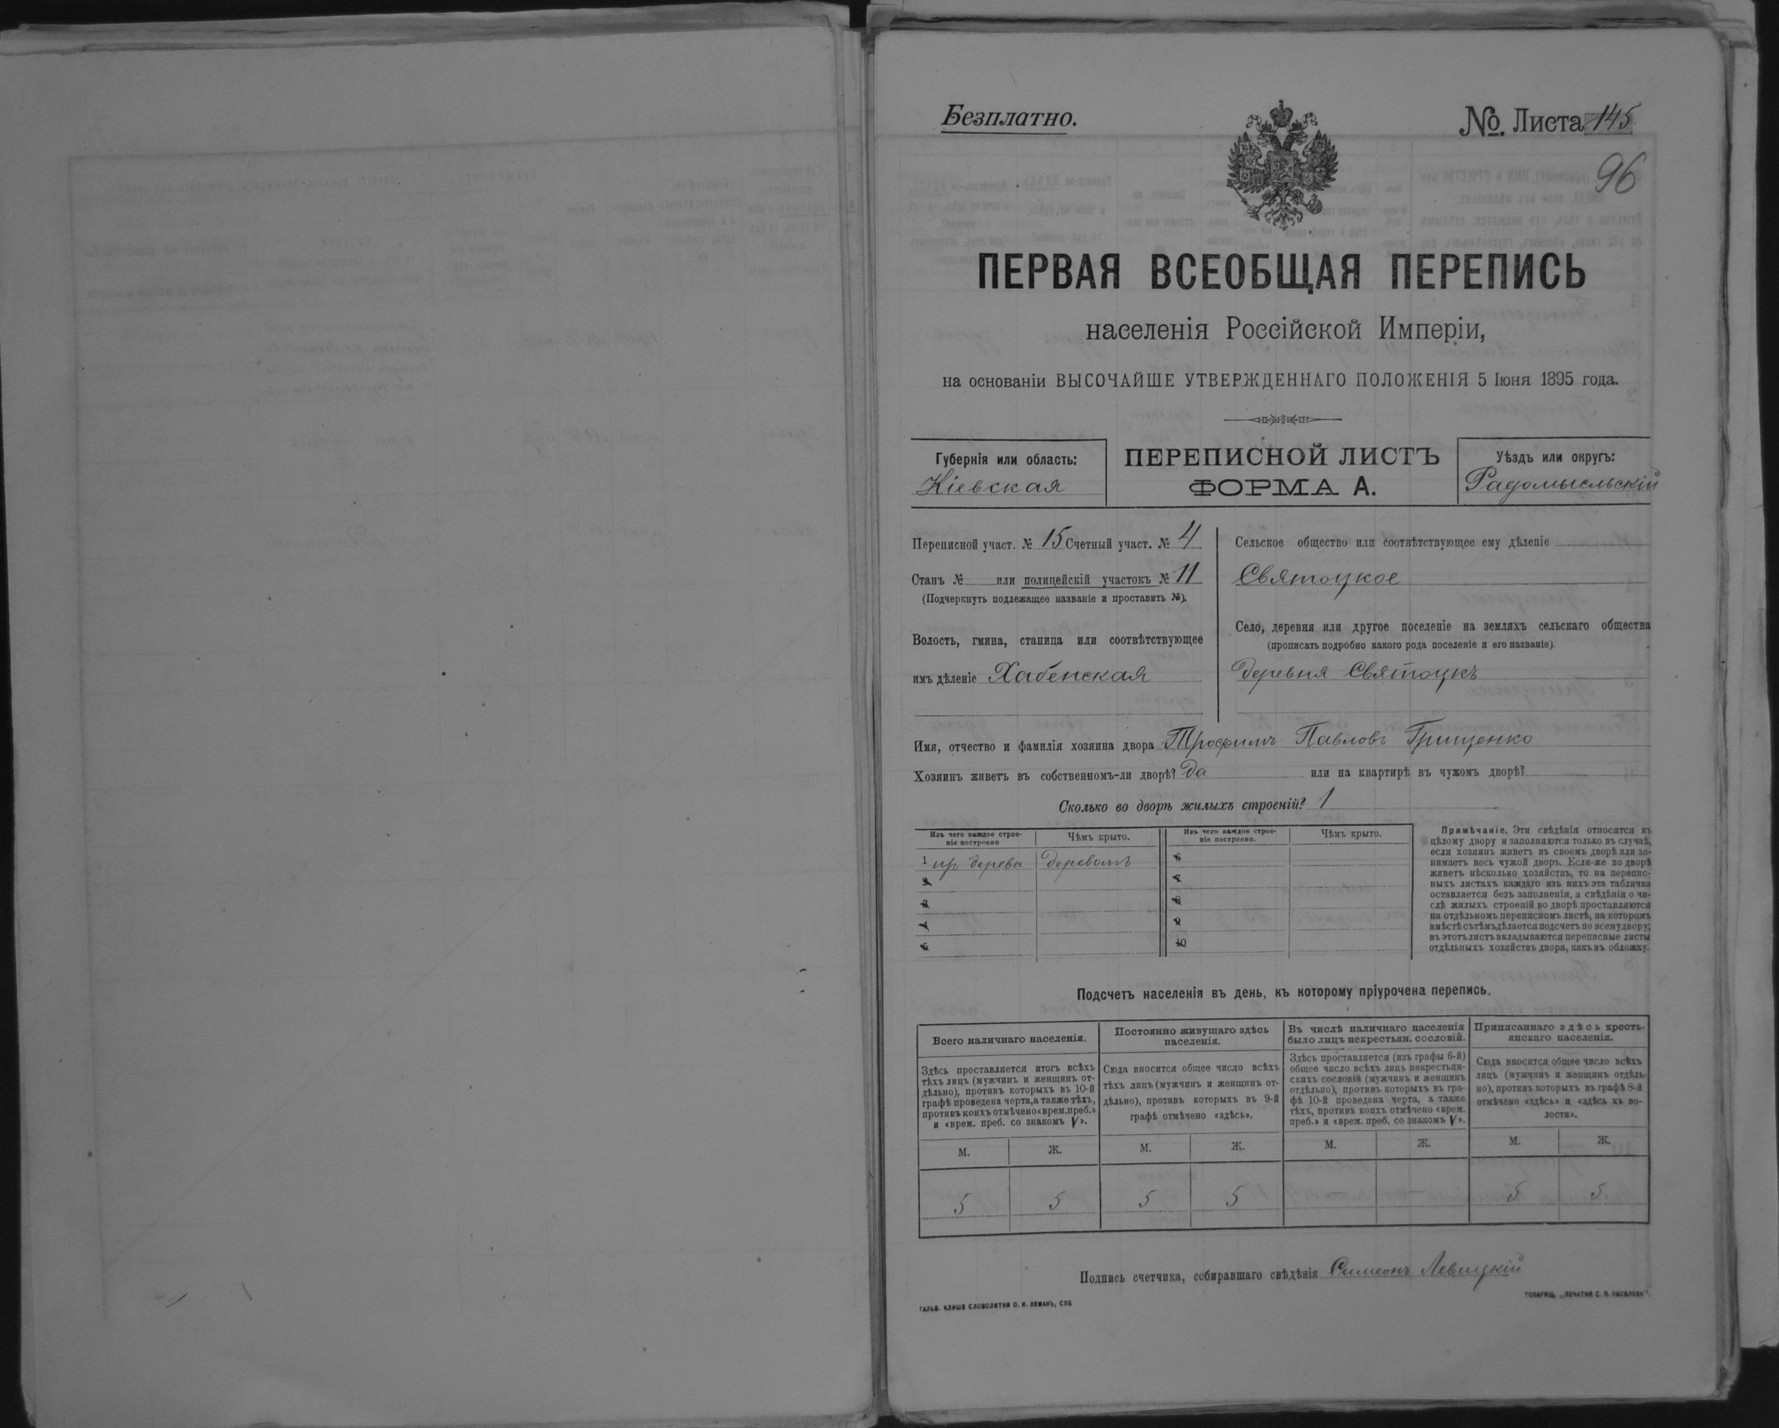 Безплатно.
№. Листа 145
96
ПЕРВАЯ ВСЕОБЩАЯ ПЕРЕПИСЬ
населенія Россійской Имперіи,
на основаніи ВЫСОЧАЙШЕ УТВЕРЖДЕННАГО ПОЛОЖЕНІЯ 5 Іюня 1895 года.
Губернія или область:
Кіевская
ПЕРЕПИСНОЙ ЛИСТЪ
ФОРМА А.
Уѣздъ или округъ:
Радомысльскій
Переписной участ. № 15 Счетный участ. № 4
Станъ № или полицейскій участокъ № 11
(Подчеркнуть подлежащее названіе и проставить №).
Волость, гмина, станица или соотвѣтствующее
имъ дѣленіе Хабенская
Сельское общество или соотвѣтствующее ему дѣленіе
Святоцкое
Село, деревня или другое поселеніе на земляхъ сельскаго общества
(прописать подробно какого рода поселеніе и его названіе)
деревня Святоцкъ
Имя, отчество и фамилія хозяина двора Трофимъ Павловъ Грищенко
Хозяинъ живетъ въ собственномъ-ли дворѣ? да или на квартирѣ въ чужомъ дворѣ?
Сколько во дворѣ жилыхъ строеній? 1
Изъ чего каждое строе-
ніе построено
Чѣмъ крыто.
Изъ чего каждое строе-
ніе построено.
Чѣмъ крыто.
1 дерева деревомъ
2
3
4
5
6
7
8
9
10
Примѣчаніе. Эти свѣдѣнія относятся къ
цѣлому двору и заполняются только въ случаѣ,
если хозяинъ живетъ въ своемъ дворѣ или за-
нимаетъ весь чужой дворъ. Если-же во дворѣ
живетъ нѣсколько хозяйствъ, то на перепис-
ныхъ листахъ каждаго изъ нихъ эта табличка
оставляется безъ заполненія, а свѣдѣнія о чи-
слѣ жилыхъ строеній во дворѣ проставляются
на отдѣльномъ переписномъ листѣ, на которомъ
вмѣстѣ съ тѣмъ дѣлается подсчетъ по всему двору;
въ этотъ листъ вкладываются переписные листы
отдѣльныхъ хозяйствъ двора, какъ въ обложку.
Подсчетъ населенія въ день, къ которому пріурочена перепись.
Всего наличнаго населенія.
Здѣсь проставляется итогъ всѣхъ
тѣхъ лицъ (мужчинъ и женщинъ от-
дѣльно), противъ которыхъ въ 10-й
графѣ проведена черта, а также тѣхъ,
противъ коихъ отмѣчено «врем. преб.»
и «врем. преб. со знакомъ V».
Постоянно живущаго здѣсь
населенія.
Сюда вносится общее число всѣхъ
тѣхъ лицъ (мужчинъ и женщинъ от-
дѣльно), противъ которыхъ въ 9-й
графѣ отмѣчено «здѣсь».
Въ числѣ наличнаго населенія
было лицъ некрестьян. сословій.
Здѣсь проставляется (изъ графы 6-й)
общее число всѣхъ лицъ некрестьян-
скихъ сословій (мужчинъ и женщинъ
отдѣльно), противъ которыхъ въ гра-
фѣ 10-й проведена черта, а также
тѣхъ, противъ коихъ отмѣчено «врем.
преб.» и «врем. преб. со знакомъ V».
Приписаннаго здѣсь кресть-
янскаго населенія.
Сюда вносится общее число всѣхъ
лицъ (мужчинъ и женщинъ отдѣль-
но), противъ которыхъ въ графѣ 8-й
отмѣчено «здѣсь» и «здѣсь въ во-
лости».
М. Ж. М. Ж. М. Ж. М. Ж.
5 5 5 5 — — 5 5
Подпись счетчика, собиравшаго свѣдѣнія Симеонъ Левицкій
ГАЛЬВ. КЛИШЕ СЛОВОЛИТНИ О. И. ЛЕМАНЪ, СПБ
ТОВАРИЩ. „ПЕЧАТНЯ С. П. ЯКОВЛЕВА".